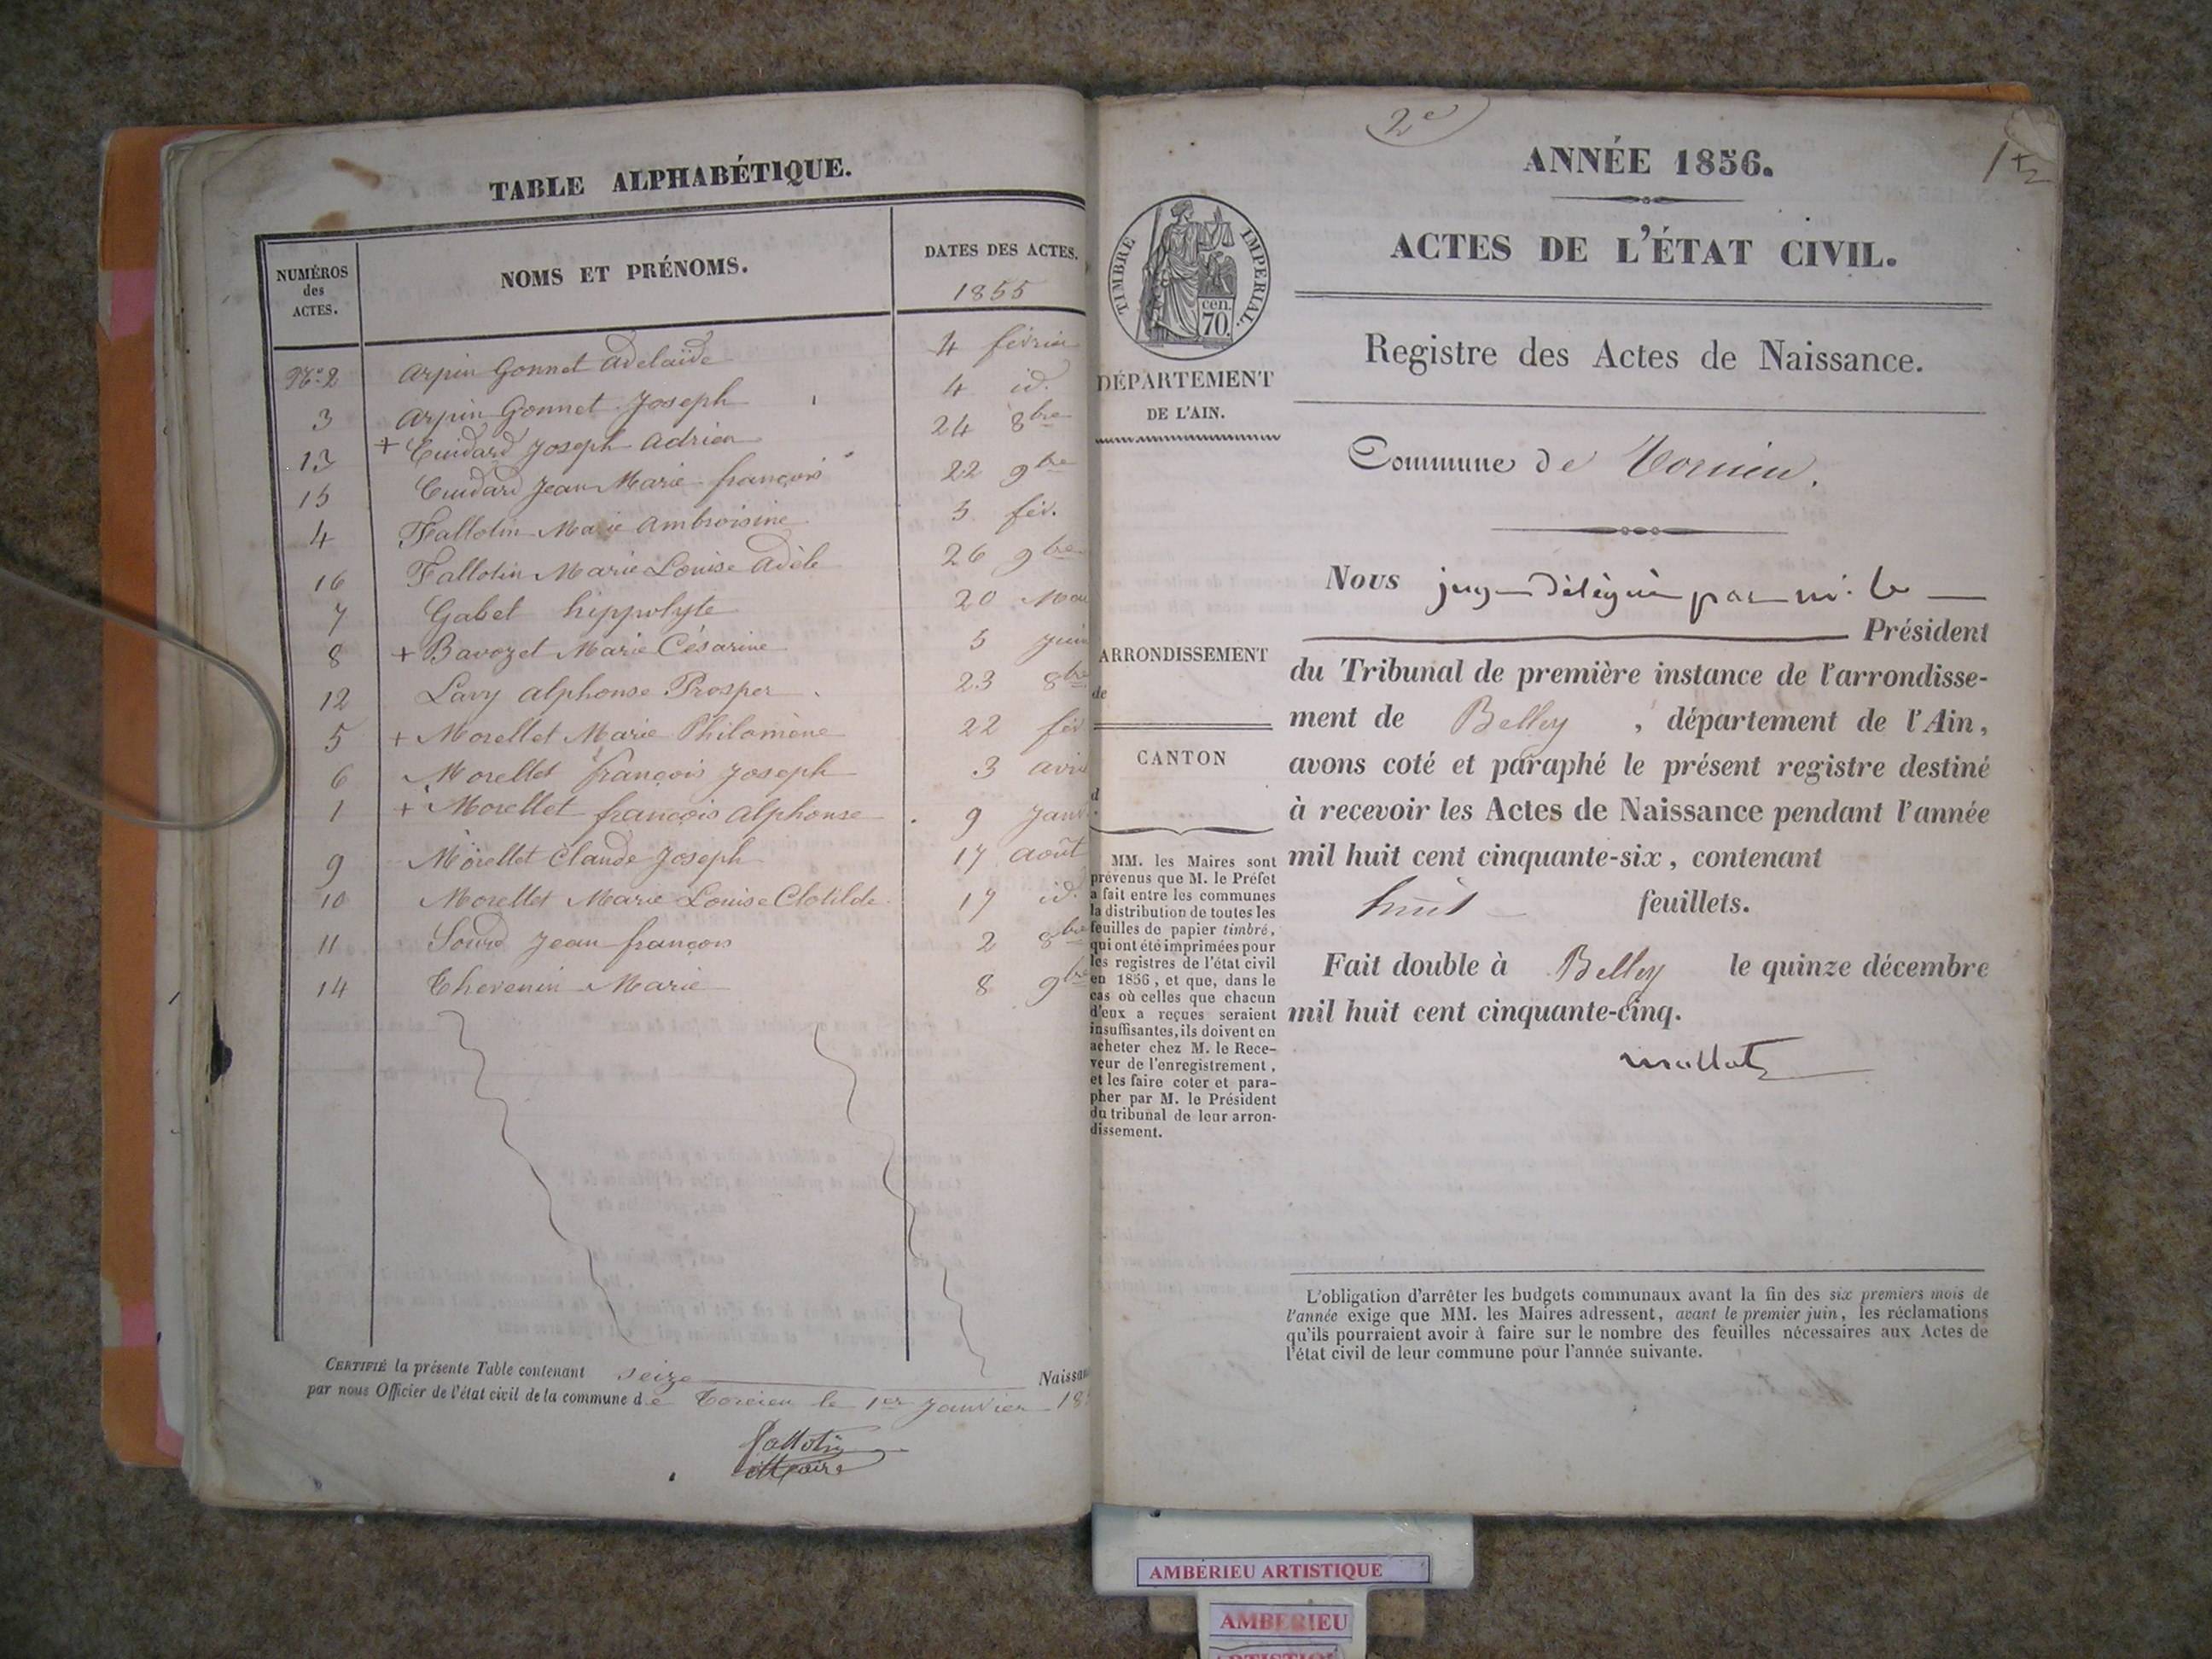 TABLE ALPHABÉTIQUE.
NUMÉROS
des
ACTES.
NOMS ET PRÉNOMS.
DATES DES ACTES.
1855
No. 2 Arpin Gonnet Adelaïde 4 février
3 Arpin Gonnet Joseph 4 id.
13 + Cuidard Joseph Adrien 24 8bre
15 Cuidard Jean Marie françois 22 9bre
4 Fallotin Marie Ambroisine 5 fév.
16 Fallotin Marie Louise Adèle 26 9bre
7 Gabet hippolyte 20 Mai
8 + Bavozet Marie Césarine 5 Juin
12 Lavy alphonse Prosper 23 8bre
5 + Morellet Marie Philomène 22 fév
6 Morellet françois Joseph 3 avri
1 + Morellet françois Alphonse 9 Janv.
9 Morellet Claude Joseph 17 août
10 Morellet Marie Louise Clotilde 17 id.
11 Sourd Jean françois 2 8bre
14 Thevenin Marie 8 9bre
CERTIFIÉ la présente Table contenant seize Naissan
par nous Officier de l'état civil de la commune de Torcieu le 1er Janvier 18
Fallotin
Maire
2e
ANNÉE 1856.
ACTES DE L'ÉTAT CIVIL.
TIMBRE IMPERIAL.
cen.
70.
Registre des Actes de Naissance.
DÉPARTEMENT
DE L'AIN.
Commune de Torcieu.
Nous juge délégué par m. le
Président
ARRONDISSEMENT
de
du Tribunal de première instance de l'arrondisse-
ment de Belley, département de l'Ain,
CANTON
d
avons coté et paraphé le présent registre destiné
à recevoir les Actes de Naissance pendant l'année
mil huit cent cinquante-six, contenant
huit feuillets.
Fait double à Belley le quinze décembre
mil huit cent cinquante-cinq.
MM. les Maires sont
prévenus que M. le Préfet
a fait entre les communes
la distribution de toutes les
feuilles de papier timbré,
qui ont été imprimées pour
les registres de l'état civil
en 1856, et que, dans le
cas où celles que chacun
d'eux a reçues seraient
insuffisantes, ils doivent en
acheter chez M. le Rece-
veur de l'enregistrement,
et les faire coter et para-
pher par M. le Président
du tribunal de leur arron-
dissement.
L'obligation d'arrêter les budgets communaux avant la fin des six premiers mois de
l'année exige que MM. les Maires adressent, avant le premier juin, les réclamations
qu'ils pourraient avoir à faire sur le nombre des feuilles nécessaires aux Actes de
l'état civil de leur commune pour l'année suivante.
AMBÉRIEU ARTISTIQUE
AMBERIEU
ARTISTIQUE